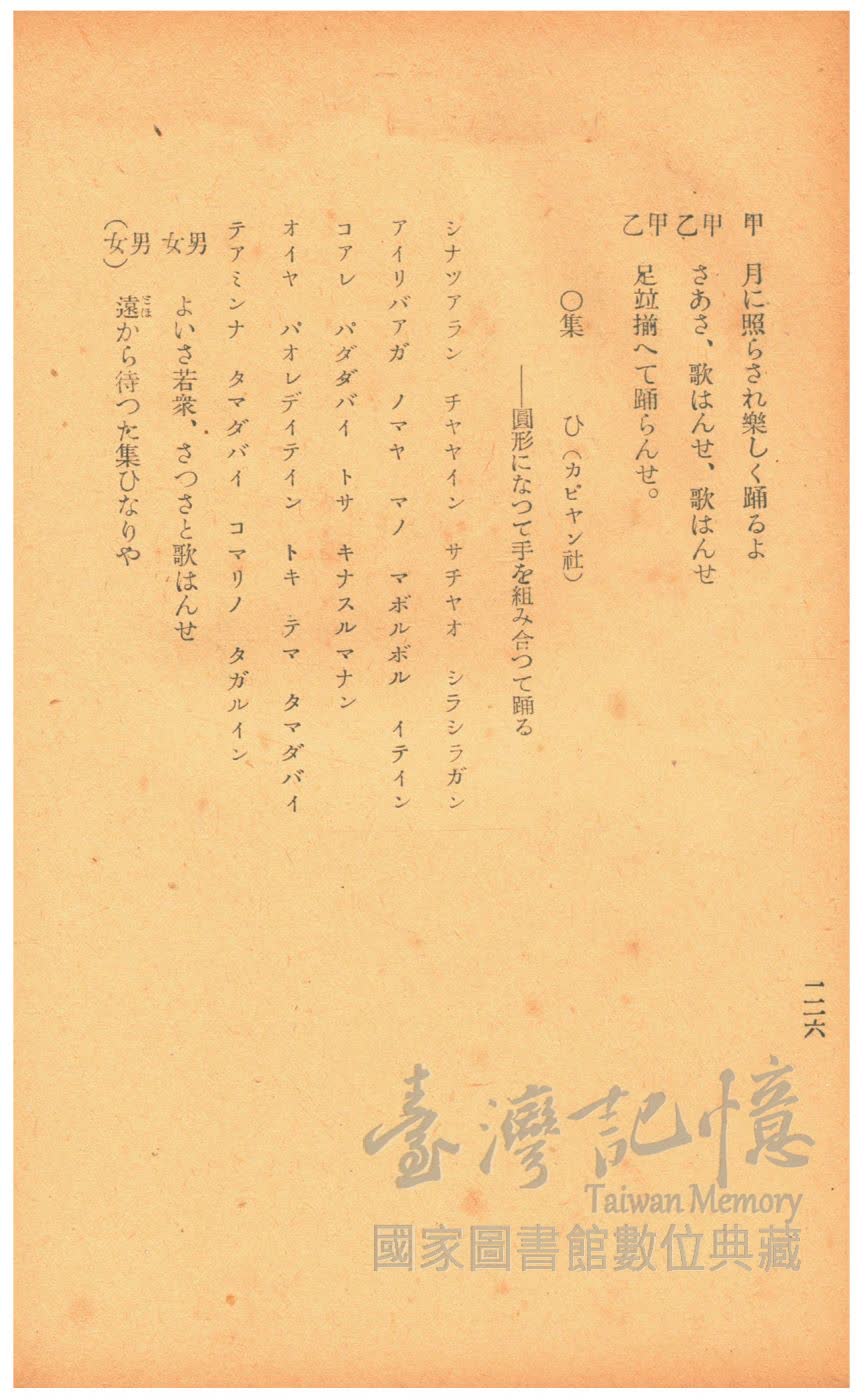 甲　月に照らされ樂しく踊るよ
甲乙　さあさ、歌はんせ、歌はんせ
甲乙　足竝揃へて踊らんせ。
〇集　ひ（カピヤン社）
――圓形になつて手を組み合つて踊る
シナツアラン　チヤヤイン　サチヤオ　シラシラガン
アイリバアガ　ノマヤ　マノ　マボルボル　イテイン
コアレ　パダダバイ　トサ　キナスルマナン
オイヤ　パオレデイテイン　トキ　テマ　タマダバイ
テアミンナ　タマダバイ　コマリノ　タガルイン
男女　よいさ若衆、さつさと歌はんせ
男（女）　遠から待つた集ひなりや
とほ
一二六
臺灣記憶
Taiwan Memory
國家圖書館數位典藏